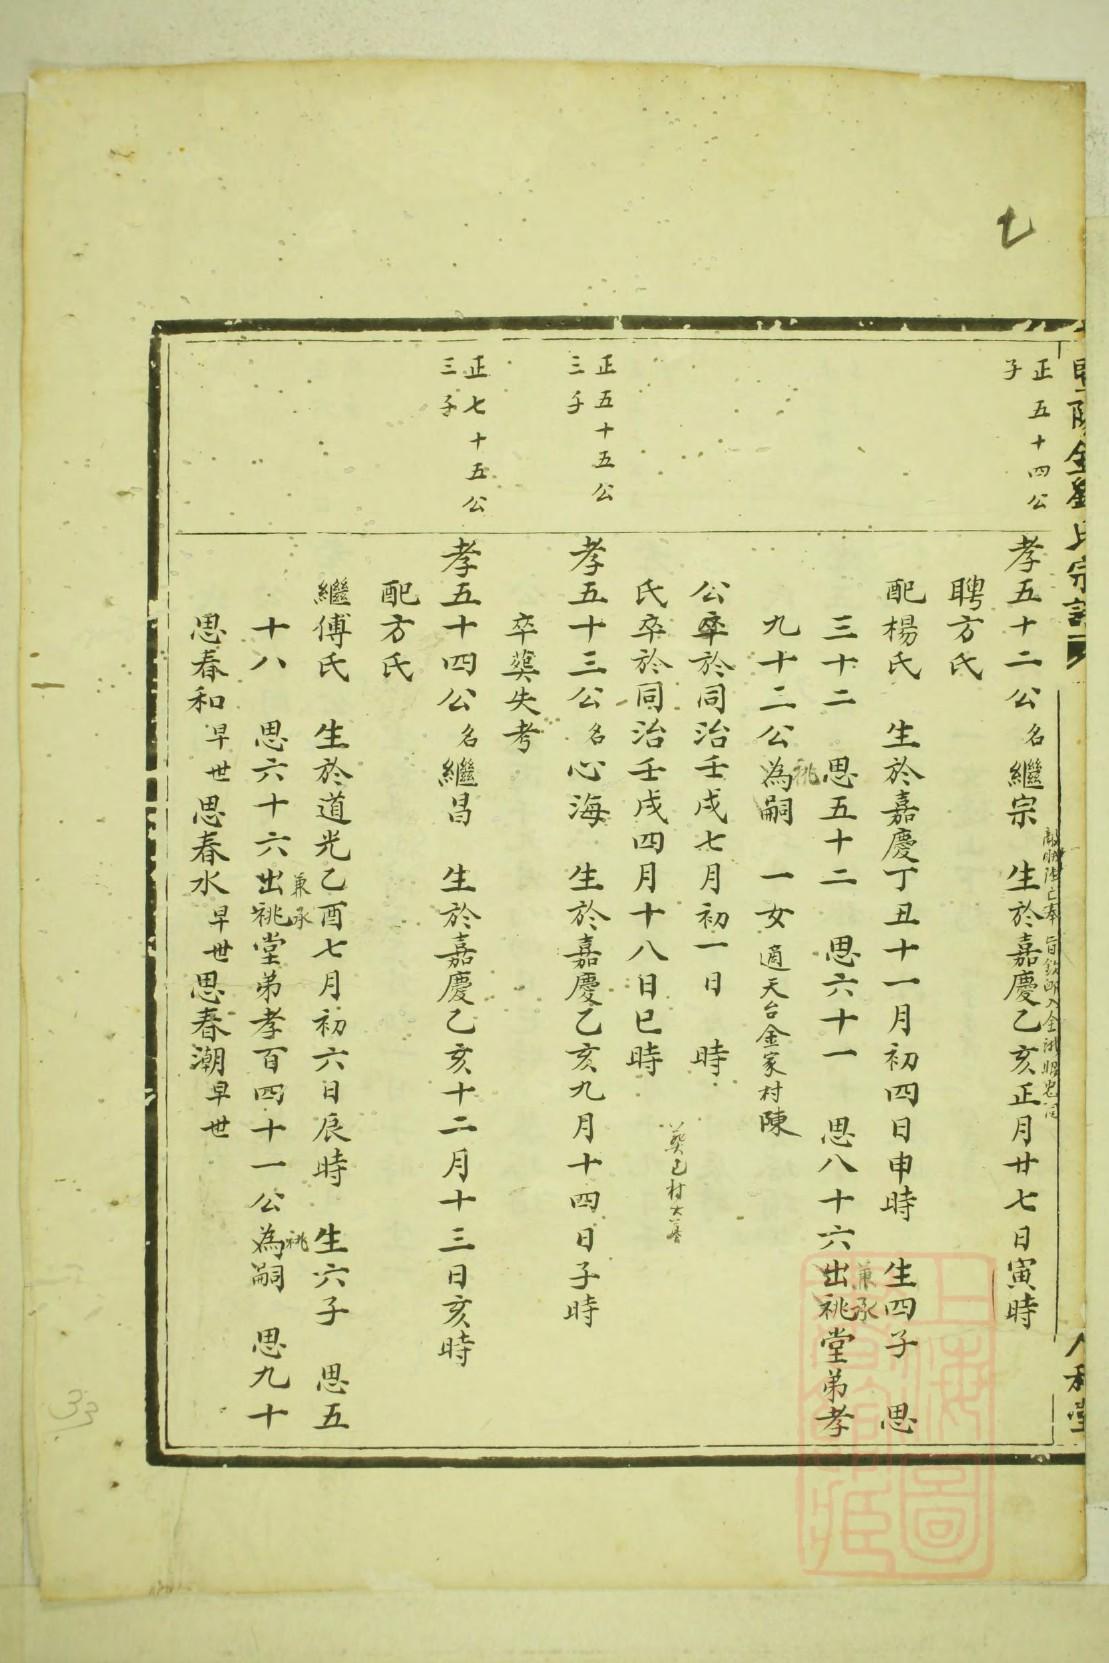 七
正五十四公
子
孝五十二公名繼宗 生於嘉慶乙亥正月廿七日寅時
聘方氏
配楊氏 生於嘉慶丁丑十一月初四日申時 生四子 思
三十二 思五十二 思六十一 思八十六出祧堂弟孝
兼承
九十二公為嗣 一女適天台金家村陳
祧
公卒於同治壬戌七月初一日 時
氏卒於同治壬戌四月十八日巳時
葬已村大
正五十五公
三子
孝五十三公名心海 生於嘉慶乙亥九月十四日子時
卒葬失考
正七十五公
三子
孝五十四公名繼昌 生於嘉慶乙亥十二月十三日亥時
配方氏
繼傅氏 生於道光乙酉七月初六日辰時 生六子 思五
十八 思六十六出祧堂弟孝百四十一公為嗣 思九十
兼承
祧
思春和早世思春水早世思春潮早世
33
上海圖